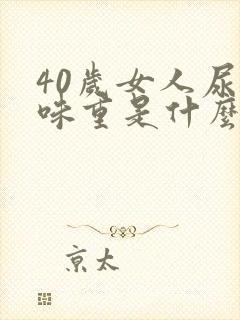 40歲女人尿
味重是什麼
京太